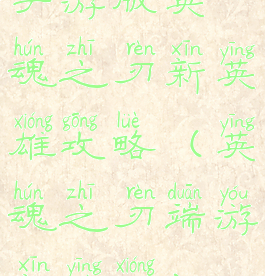 手游版英
hún zhī rèn xīn yīng
魂之刃新英
xióng gōng lüè yīng
雄攻略(英
hún zhī rèn duān yóu
魂之刃端游
xīn yīng xióng